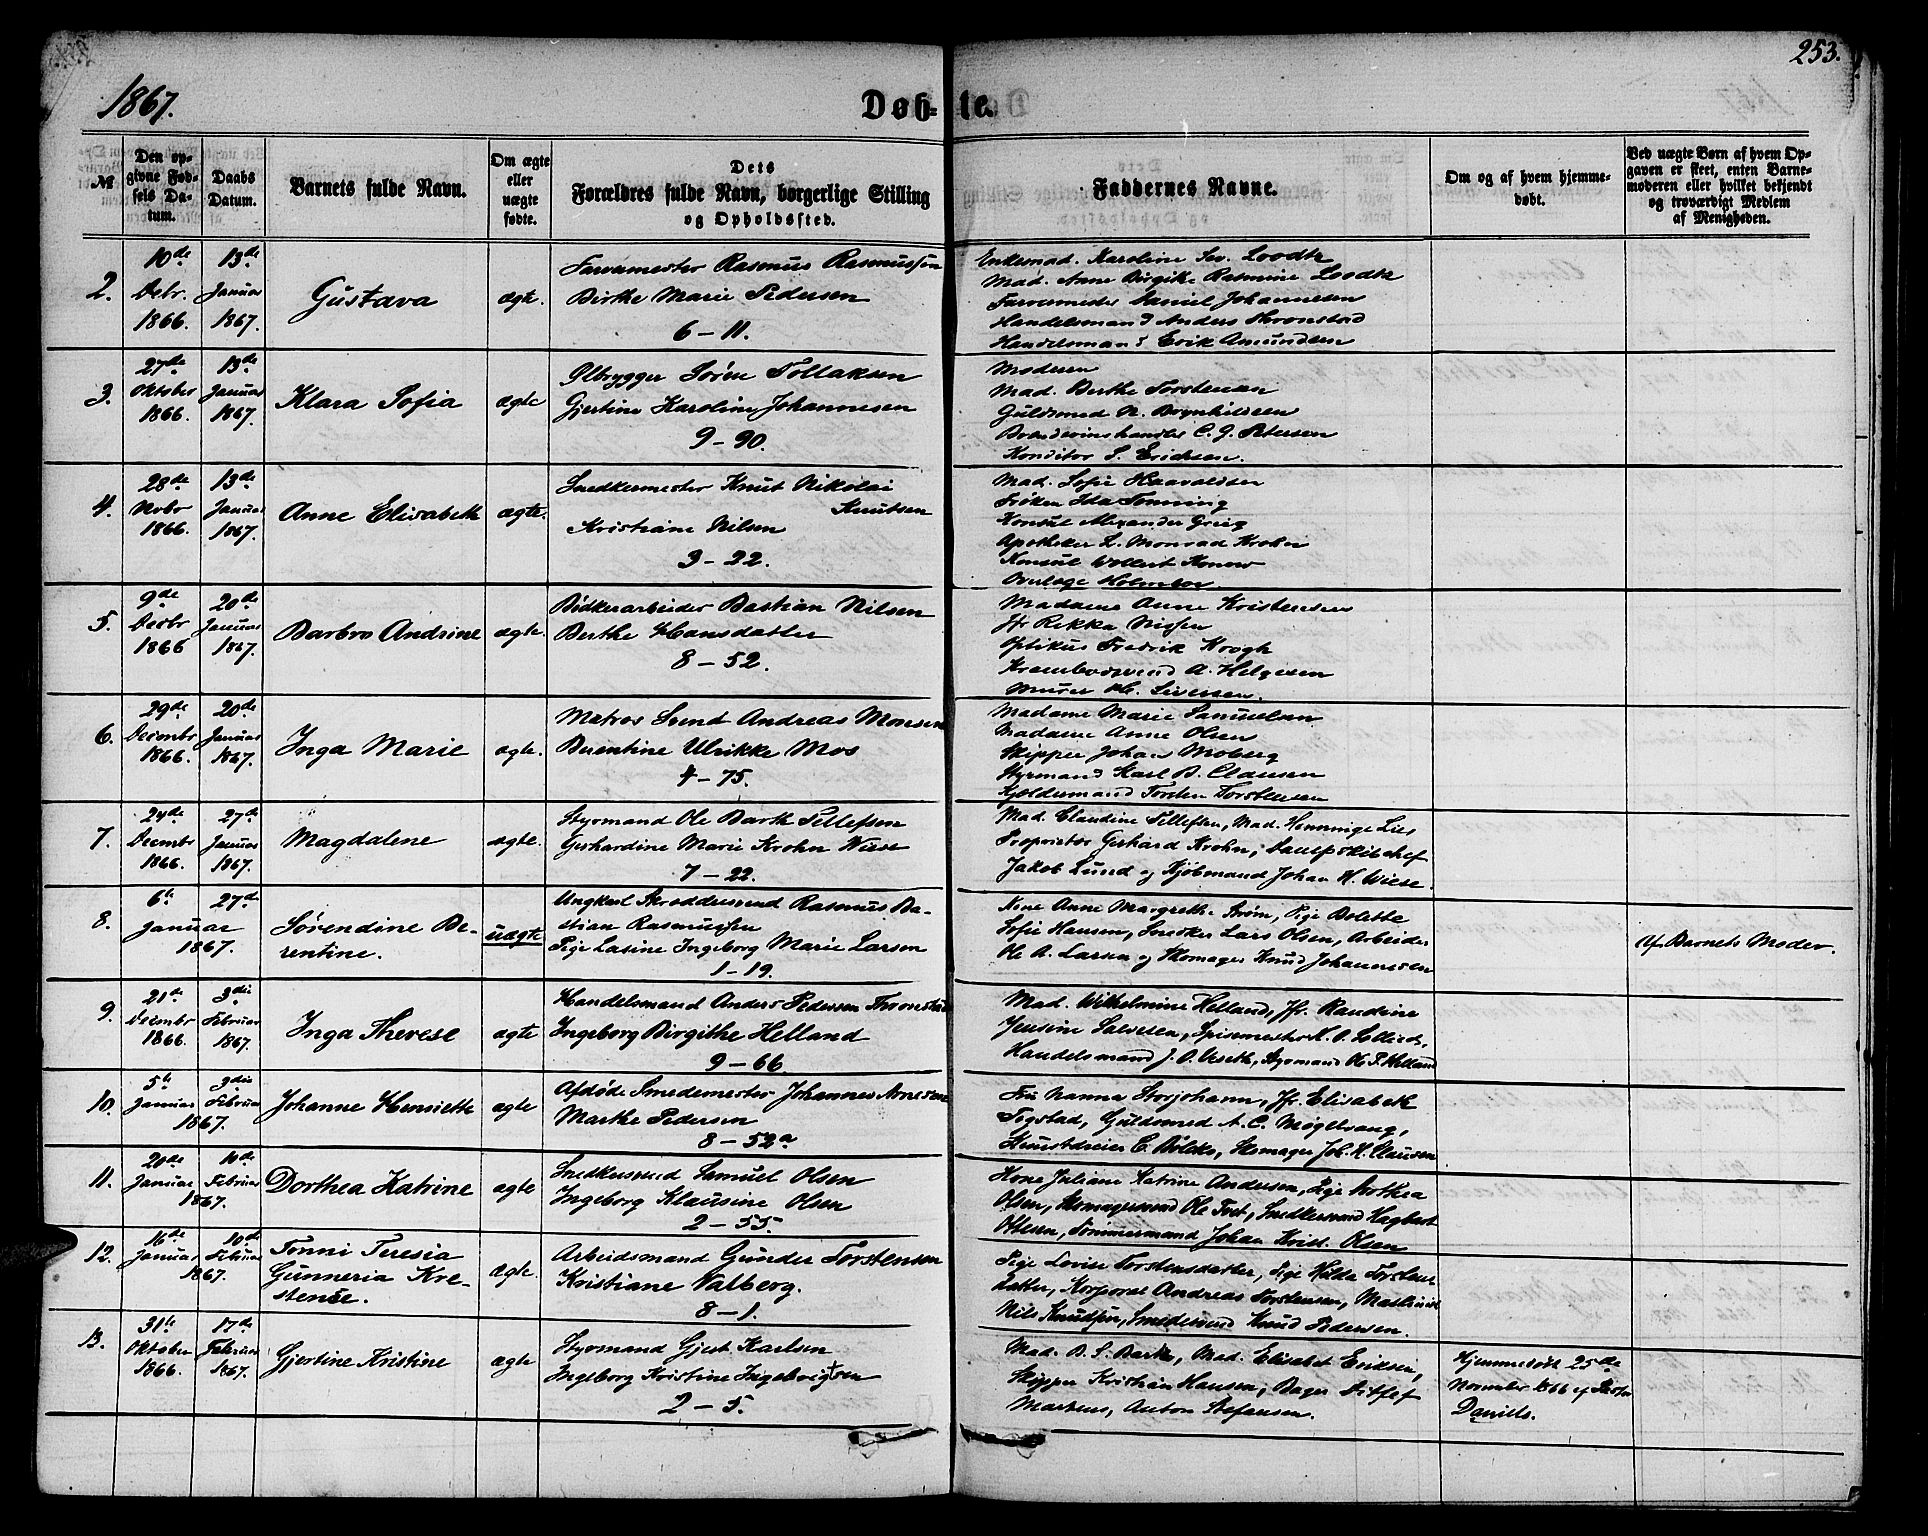 253.
1867.
Døb-te.
№
Den op-
givne Fød-
sels Da-
tum.
Daabs
Datum.
Barnets fulde Navn.
Om ægte
eller
uægte
fødte.
Dets
Forældres fulde Navn, borgerlige Stilling
og Opholdssted.
Faddernes Navne.
Om og af hvem hjemme-
døbt.
Ved uægte Børn af hvem Op-
gaven er skeet, enten Barne-
moderen eller hvilket bekjendt
og troværdigt Medlem
af Menigheden.
2.
10de
Debr.
1866.
13de
Januar
1867.
Gustava
ægte.
Farvemester Rasmus Rasmussen
Birthe Marie Pedersen
6-11.
Enkemad. Karoline Sev. Loodtz
Mad. Anne Birgite Rasmine Loodtz
Farvemester Daniel Johannesen
Handelsmand Anders Thronstad
Handelsmand Erik Amundsen
3.
27de
Oktober
1866.
13de
Januar
1867.
Klara Sofia
ægte
Ølbrygger Søren Tollaksen
Gjertine Karoline Johannesen
9-90.
Moderen
Mad. Berthe Torstensen
Guldsmed N. Brynhildsen
Brændevinshandler C. J. Petersen
Konditor S. Ericksen.
4.
28de
Novbr
1866.
13de
Januar
1867.
Anne Elisabeth
ægte.
Snedkermester Knut Nikolai
Knutsen
Kristiane Nilsen
3-22.
Mad. Sofie Haavoldsen
Frøken Ida Fonning
Konsul Alexander Grieg
Apotheker L. Monrad Krohn
Konsul Wollert Konow
Overlæge Holmboe
5.
9de
Decbr
1866
20de
Januar
1867.
Barbro Andrine
ægte.
Bødkerarbeider Bastian Nilsen
Berthe Hansdatter
8-52.
Madame Anne Kristensen
Jfr Rikka Nissen
Optikus Fredrik Krogh
Krambodsvend A. Helgesen
Murer Siversen.
6.
29de
Decembr
1866.
20de
Januar
1867.
Inga Marie
ægte.
Matros Svend Andreas Monsen
Berentine Ulrikke Mos
4-75.
Madame Marie Samuelsen
Madame Anne Olsen
Skipper Johan Moberg
Styrmand Karl B. Clausen
Kjeldermand Torsten Torstensen
7.
24de
Decembr
1866.
27de
Januar
1867.
Magdalene
ægte.
Styrmand Ole Bark Tellefsen
Gerhardine Marie Krohn Wiese
7-22.
Mad. Claudine Tellefsen, Mad. Henninge Lies
Proprietær Gerhard Krohn, Dampskibschef
Jakob Lund og Kjøbmand Johan H. Wiese.
8.
6te
27de
Januar
1867.
Sørendine Be-
rentine.
uægte
Ungkarl Skræddersvend Rasmus Ba-
stian Rasmussen
Pige Lasine Ingeborg Marie Larsen
1-19.
Kone Anne Margrethe Strøm, Pige Bolette
Sofie Hansen, Snedker Lars Olsen, Arbeider
Ole A. Larsen og Skomager Knud Johannessen
Af Barnets Moder.
9.
21de
Decembr
1866.
3die
Februar
1867.
Inga Therese
ægte
Handelsmand Anders Pedersen Thronstad
Ingeborg Birgithe Helland
9-66.
Mad. Wilhelmine Helland, Jfr. Randine
Jensine Salvesen, Spisemester
Handelsmand J. O. Urseth, Styrmand Ole P. Helland
10.
5te
Januar
3die
Februar
1867.
Johanne Henriette
ægte
Afdøde Smedemester Johannes Arnesen
Marthe Pedersen
8-52a
Fru Nanna Storjohann, Jfr. Elisabeth
Fogstad, Guldsmed A. C. Møgelvang,
Kunstdreier C. Bölcke, Skomager Joh. H. Clausen
11.
20de
Januar
10de
Februar
1867.
Dorthea Katrine
ægte
Snedkersvend Samuel Olsen
Ingeborg Klausine Olsen
2-55.
Kone Juliane Katrine Andersen, Pige Dorthea
Olsen, Skomagersvend Ole Tvet, Snedkersvend Hagbart
Ottesen, Tømmermand Johan Krist. Olsen
12.
16de
Januar
10de
Februar
1867.
Tonni Teresia
Gunneria Kre-
stense.
ægte.
Arbeidsmand Gunder Torstensen
Kristiane Valberg.
8-1.
Pige Lovise Torstensdatter, Pige Hilda Torstens-
datter, Korporal Andreas Torstensen, Maskinist
Nils Knudsen, Smedesvend Knud Pedersen.
13.
31te
Oktober
1866.
17de
Februar
1867.
Gjertine Kristine
ægte
Styrmand Gjert Karlsen
Ingeborg Kristine Ingebrigtsen
2-5.
Mad. B. S. Bark, Mad. Elisabet Eriksen,
Skipper Kristian Hansen, Bager Ditlef
Martens, Anton Stefansen.
Hjemmedøbt 25de
November 1866 af Pastor
Daniels.